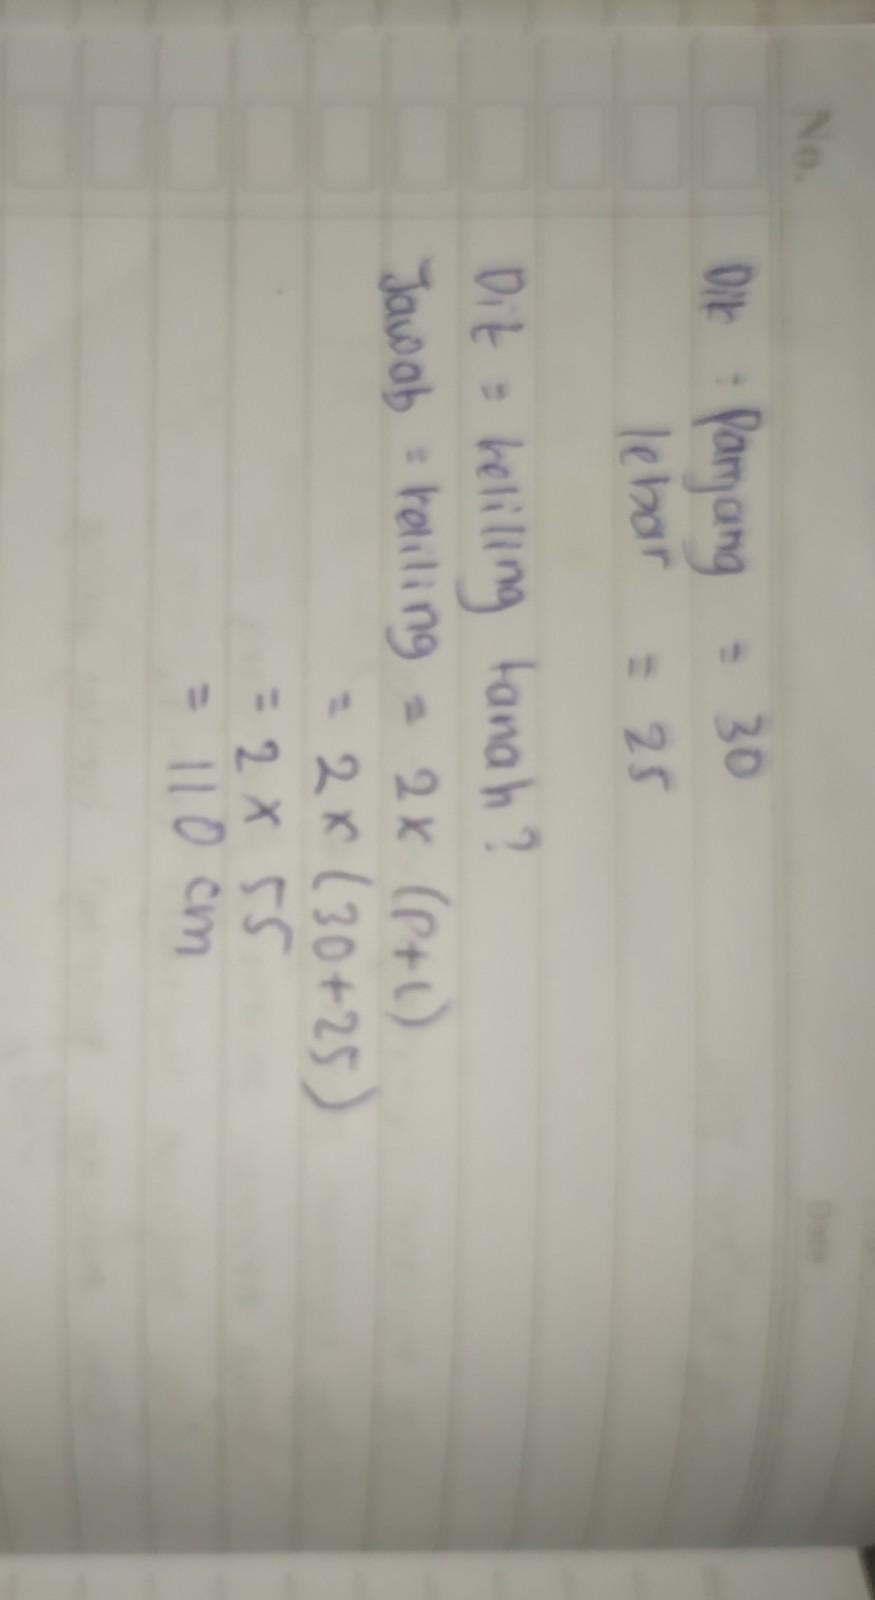 No.
Date
Dik : Panjang = 30
lebar = 25
Dit = keliling tanah?
Jawab = keliling = 2 x (p+l)
= 2 x (30+25)
= 2 x 55
= 110 cm